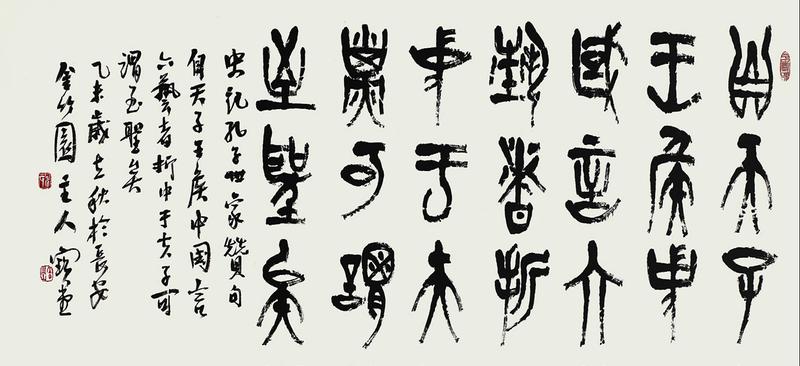 自天子
王侯中
國言六
藝者折
中于夫
子可謂
至聖矣
史記孔子世家贊句
自天子王侯中国言
六藝者折中于夫子可
謂至聖矣
乙未歲之秋於長安
竹園主人